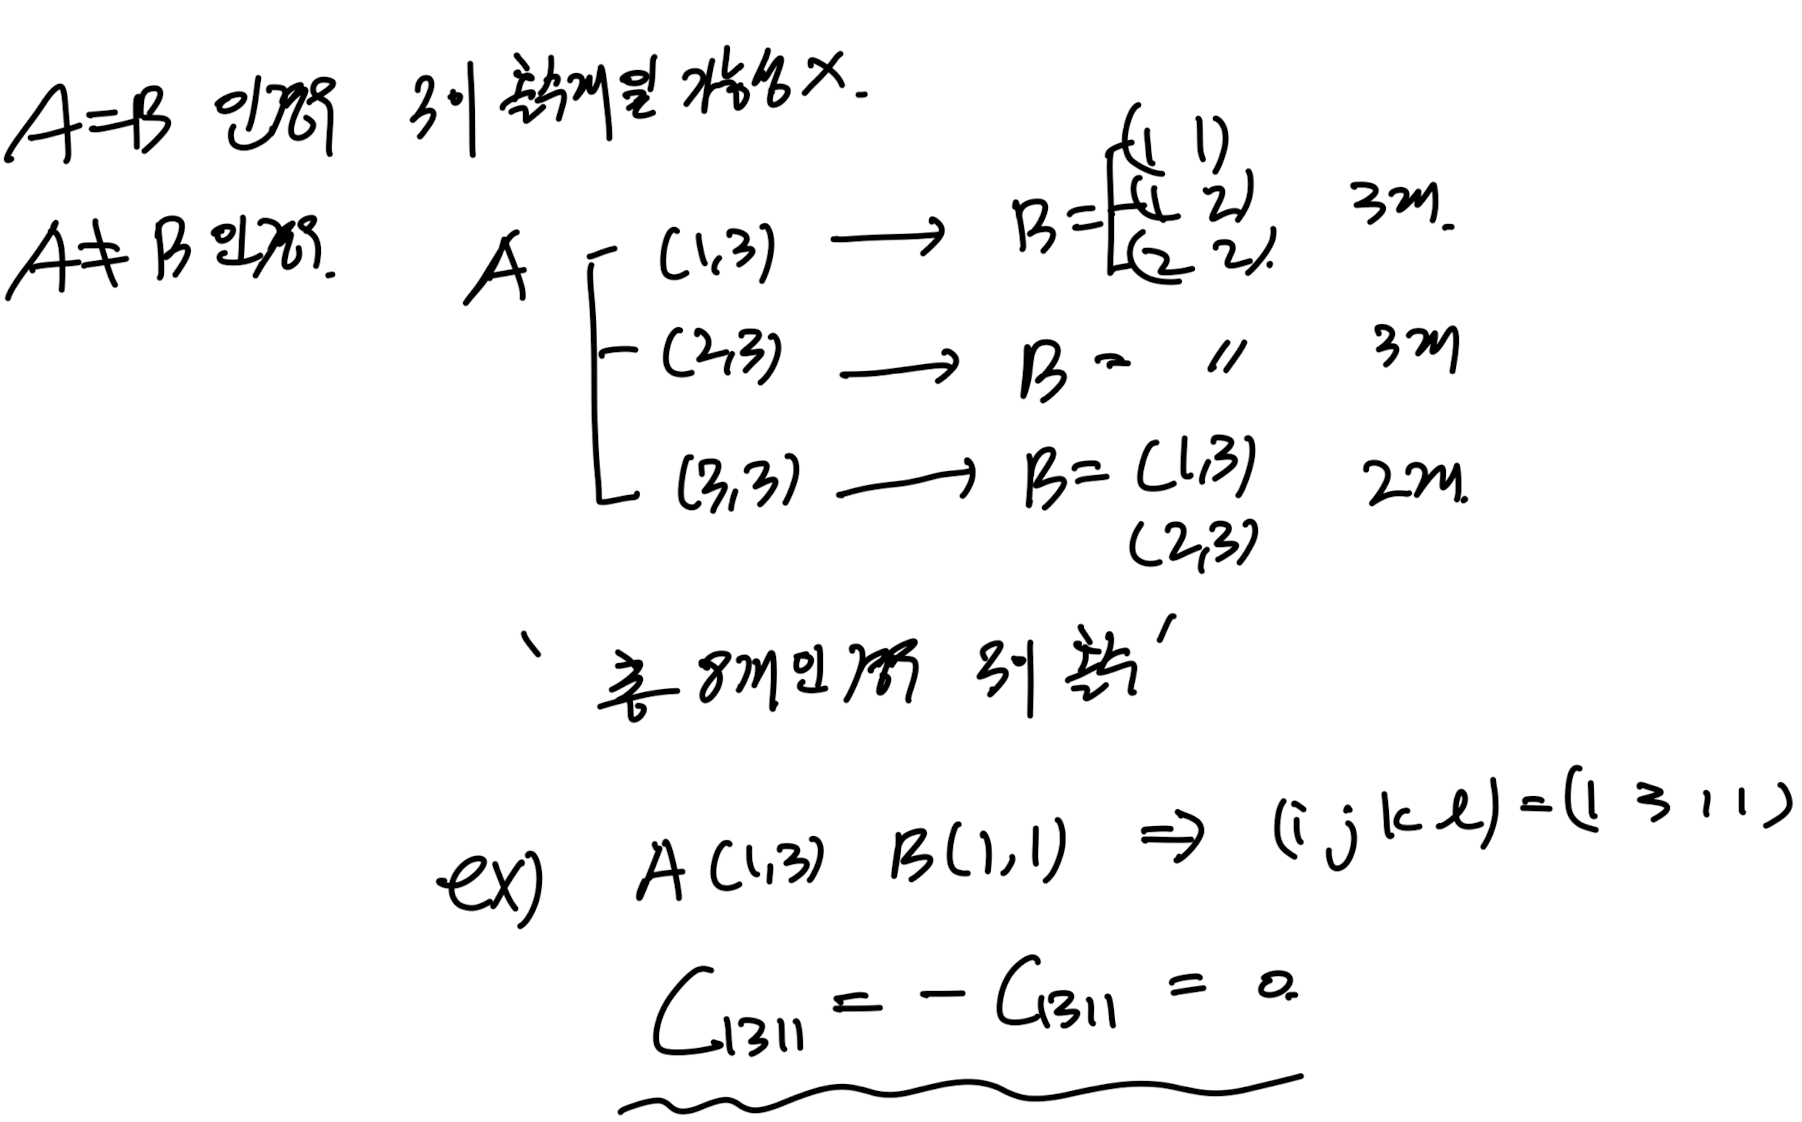 A=B 인경우 3이 홀수개일 가능성 X.
A≠B 인경우.
A (1,3) → B= (1 1) (1 2) (2 2). 3개.
(2,3) → B = 〃 3개
(3,3) → B= (1,3) 2개.
(2,3)
' 총 8개인 경우 3이 홀수 '
ex) A (1,3) B(1,1) ⇒ (i j k l)=(1 3 1 1)
C1311 = - C1311 = 0.